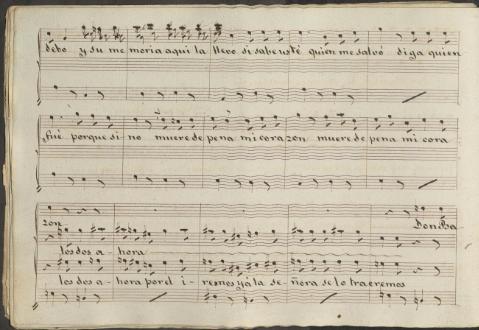 debo y su memoria aqui la llevo si sabe usté quien me salvó diga quien
fué porque si no muere de pena mi corazon muere de pena mi cora
zon Don Ba
los dos ahora
los dos ahora por el iremos y a la señora se lo traeremos